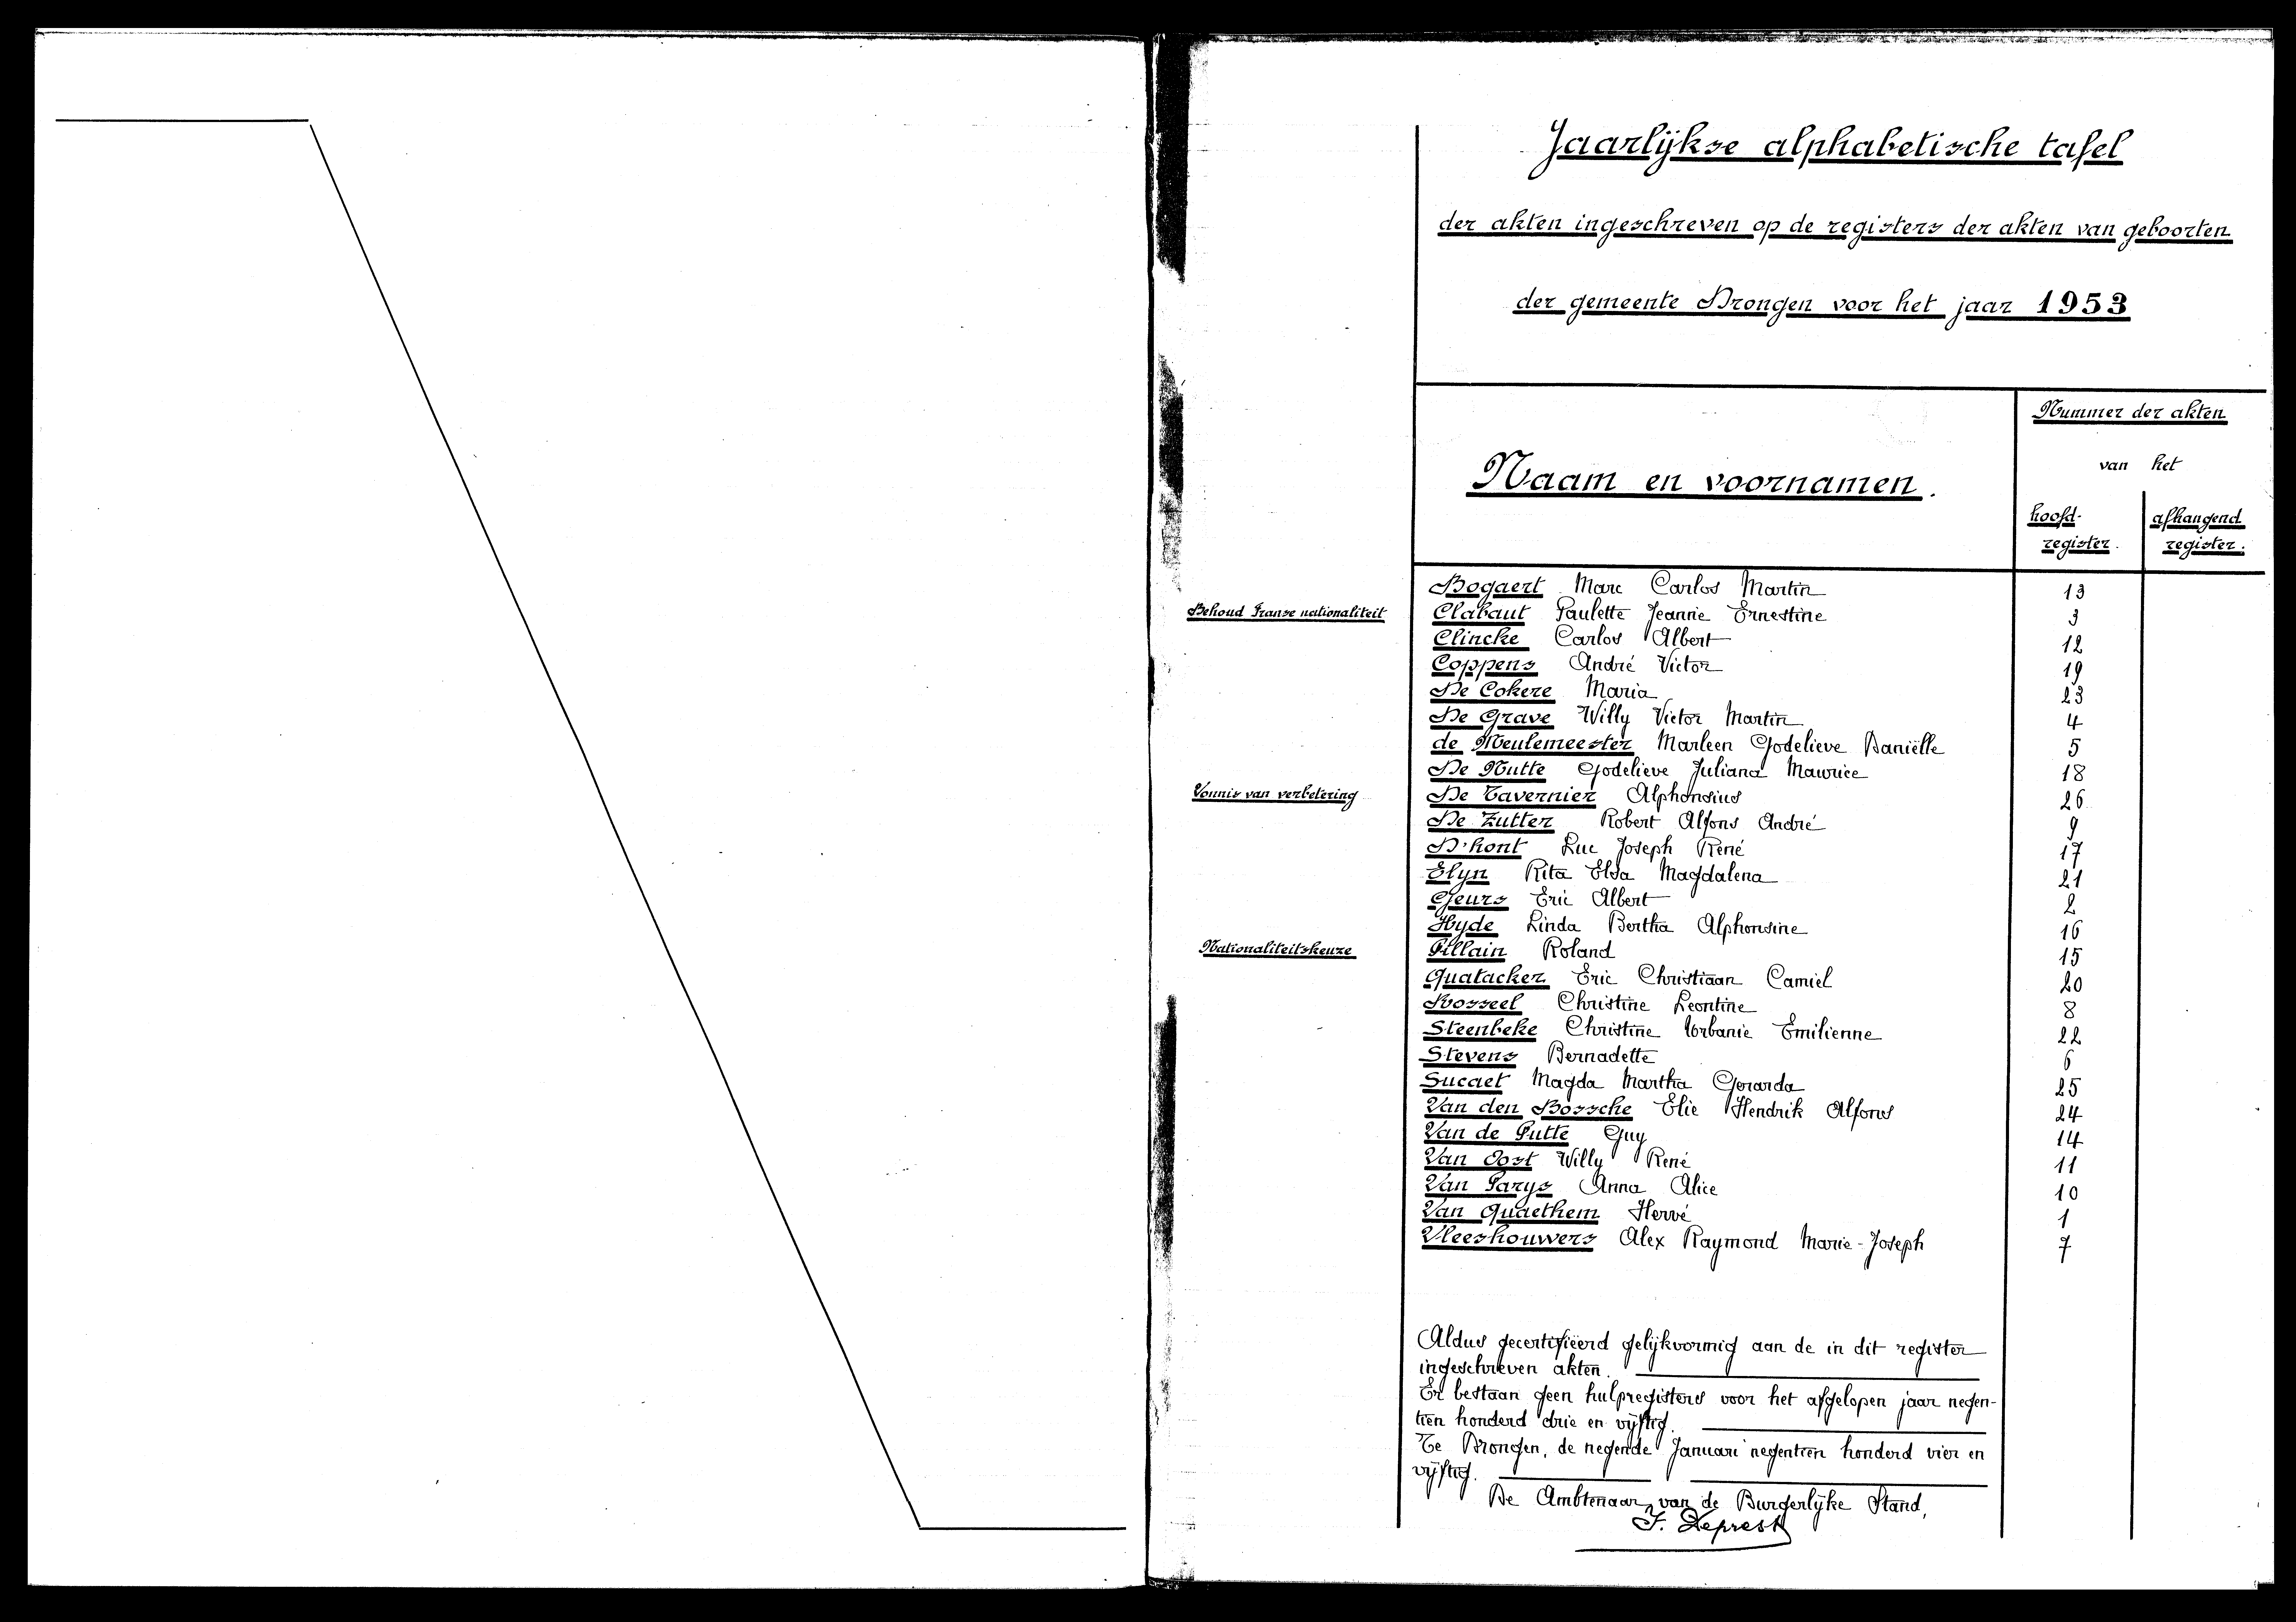 Jaarlijkse alphabetische tafel
der akten ingeschreven op de registers der akten van geboorten
der gemeente Drongen voor het jaar 1953
Nummer der akten
van het
Naam en voornamen.
hoofd-
register.
afhangend
register.
Bogaert Marc Carlos Martin 13
Behoud Franse nationaliteit Clabaut Paulette Jeanne Ernestine 3
Clincke Carlos Albert 12
Coppens André Victor 19
De Cokere Maria 23
De Grave Willy Victor Martin 4
de Meulemeester Marleen Godelieve Daniëlle 5
De Nutte Godelieve Juliana Maurice 18
Vonnis van verbetering De Tavernier Alphonsius 26
De Zutter Robert Alfons André 9
D'hont Luc Joseph René 17
Elyn Rita Elsa Magdalena 21
Geurs Eric Albert 2
Hyde Linda Bertha Alphonsine 16
Nationaliteitskeuze Pillain Roland 15
Quatacker Eric Christiaan Camiel 20
Rosseel Christine Leontine 8
Steenbeke Christine Urbanie Emilienne 22
Stevens Bernadette 6
Sucaet Magda Martha Gerarda 25
Van den Bossche Elie Hendrik Alfons 24
Van de Putte Guy 14
Van Oost Willy René 11
Van Parys Anna Alice 10
Van Quaethem Hervé 1
Vleeshouwers Alex Raymond Marie-Joseph 7
Aldus gecertifiëerd gelijkvormig aan de in dit register
ingeschreven akten.
Er bestaan geen hulpregisters voor het afgelopen jaar negen-
tien honderd drie en vijftig.
Te Drongen, de negende Januari negentien honderd vier en
vijftig.
De Ambtenaar van de Burgerlijke Stand,
F. Deprest